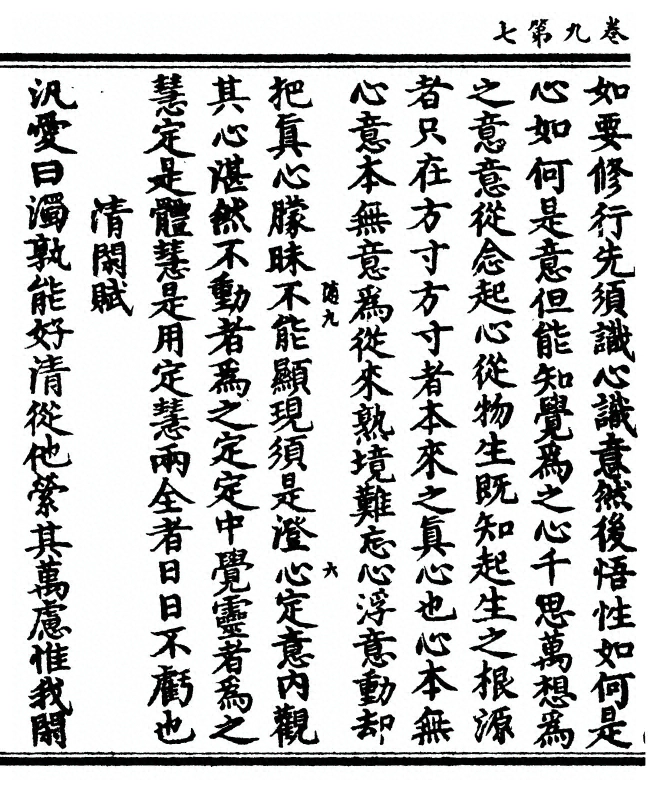 卷九第七
如要修行先須識心識意然後悟性如何是
心如何是意但能知覺爲之心千思萬想爲
之意意從念起心從物生既知起生之根源
者只在方寸方寸者本來之眞心也心本無
心意本無意爲從來熟境難忘心浮意動却
九
六
把眞心朦昧不能顯現須是澄心定意內觀
其心湛然不動者爲之定定中覺靈者爲之
慧定是體慧是用定慧兩全者日日不虧也
清閑賦
汎愛曰濁孰能好清從他縈其萬慮惟我閑